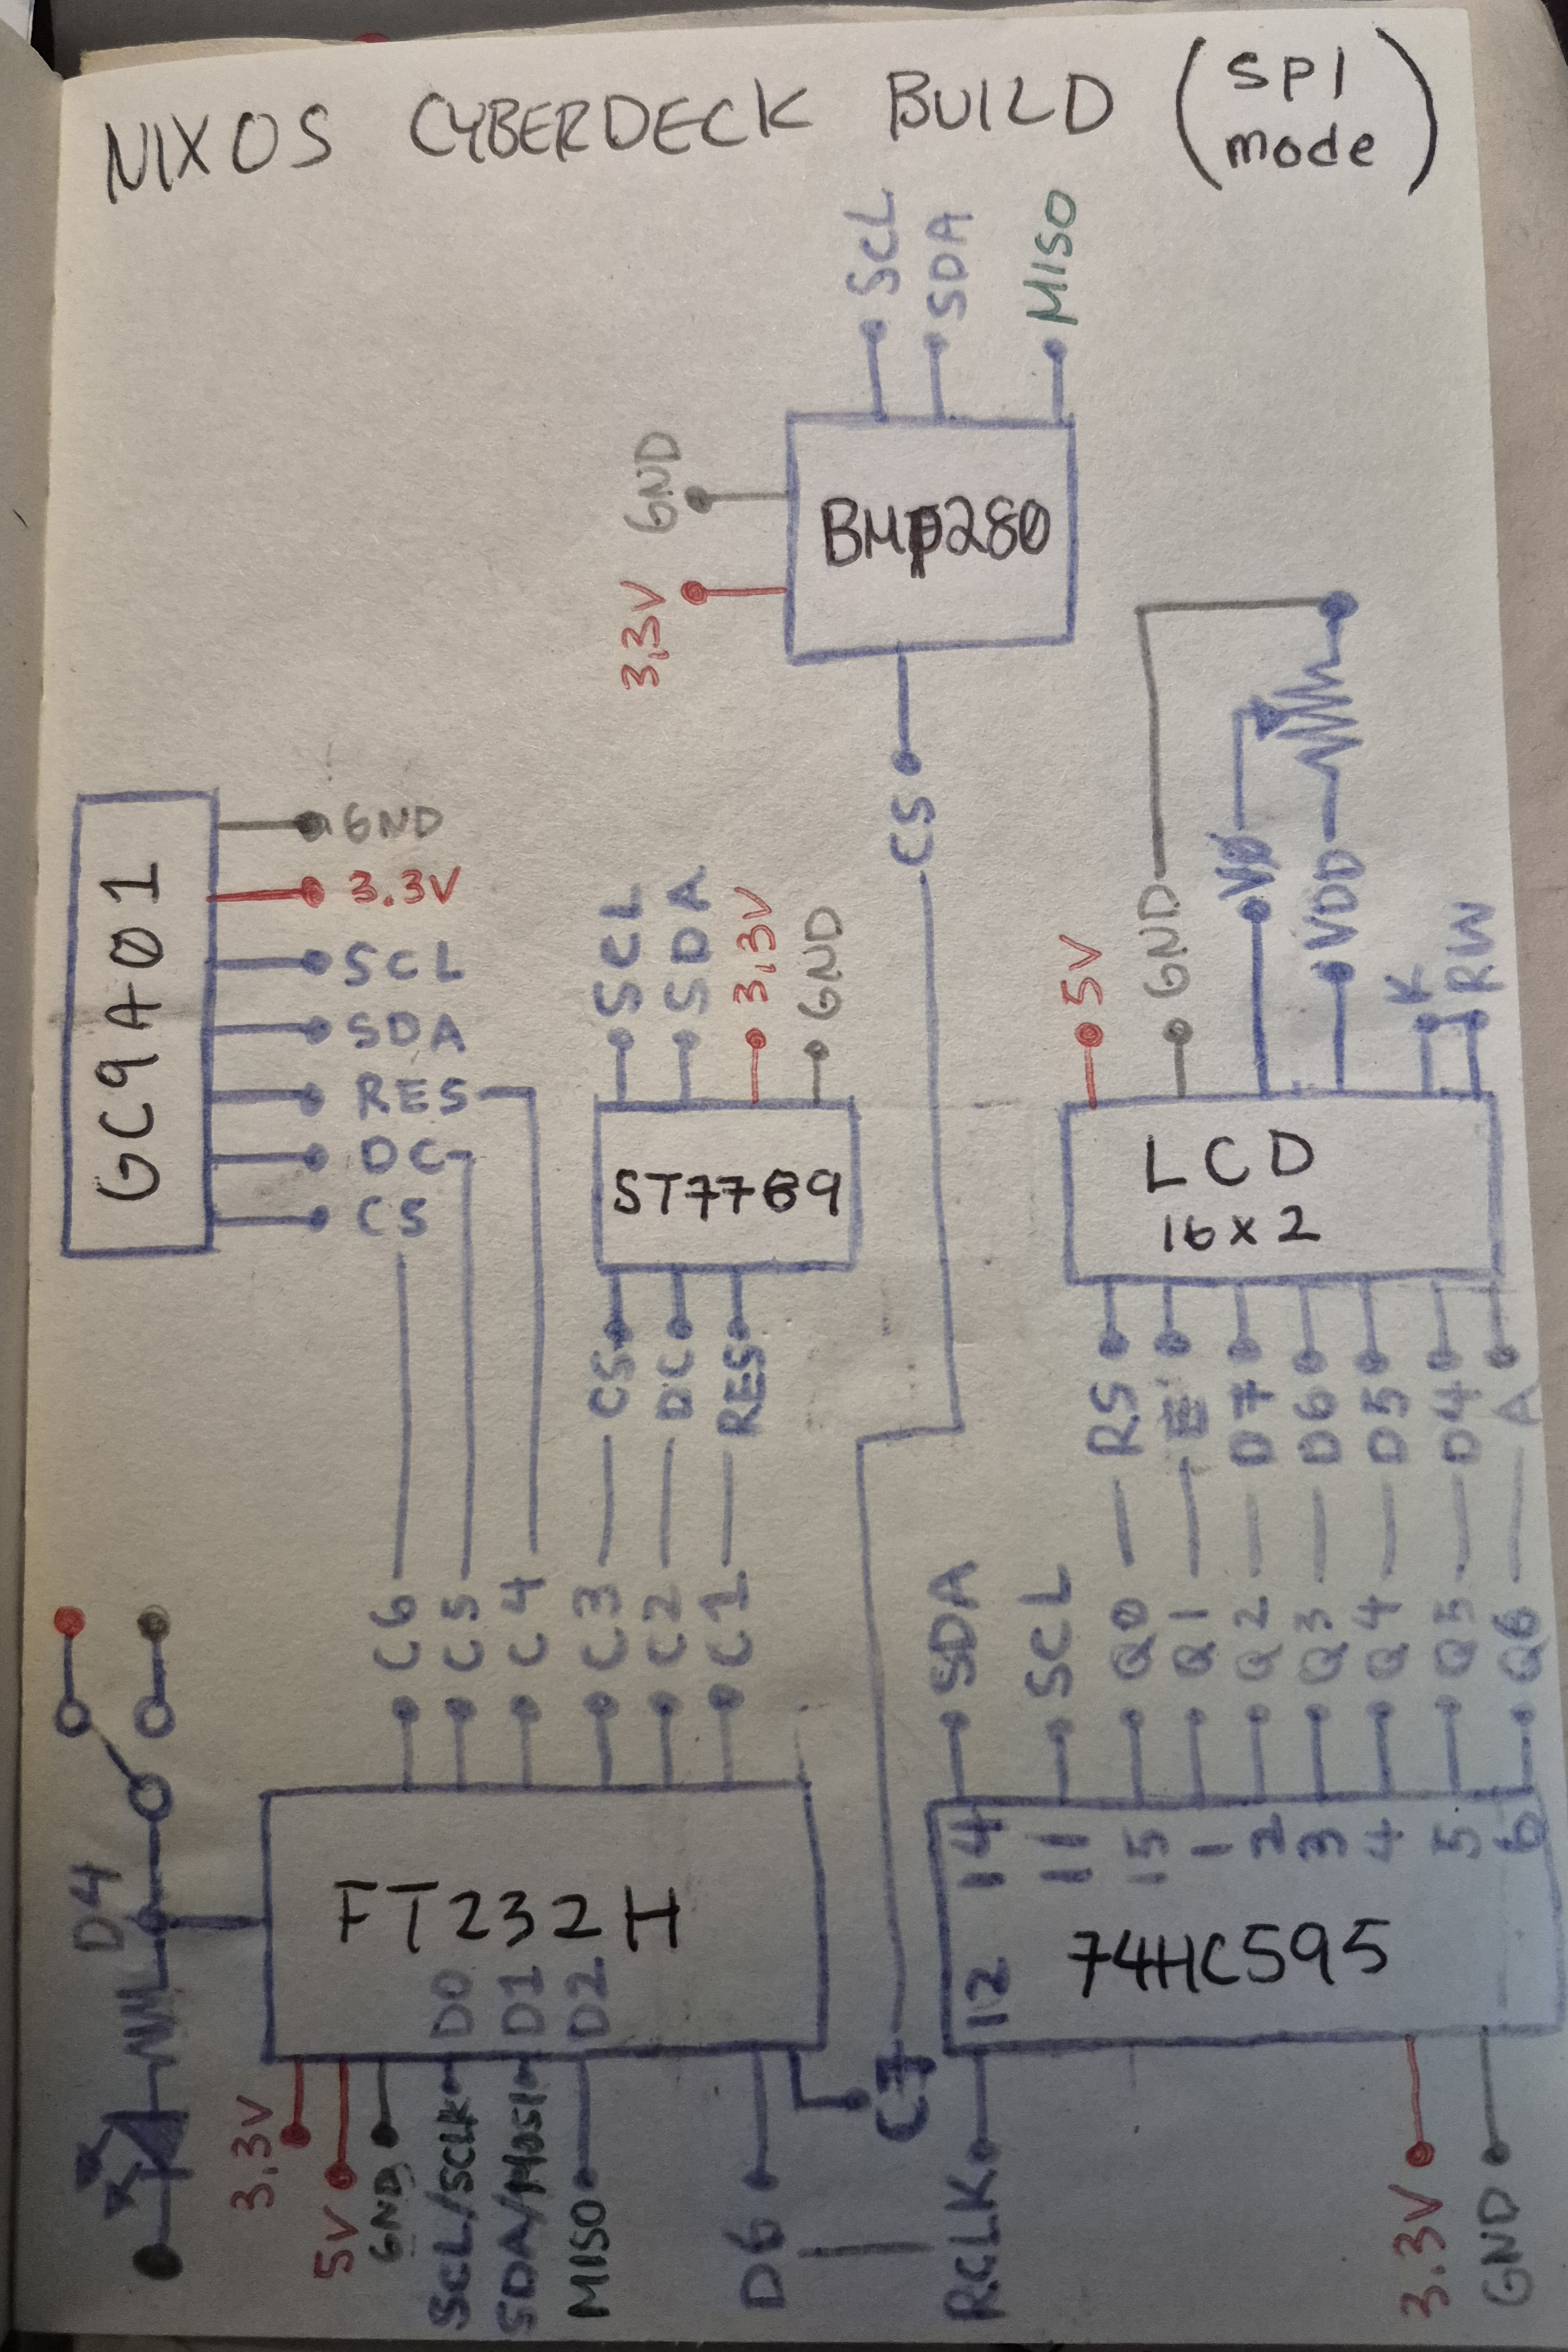 NIXOS CYBERDECK BUILD (SPI mode)
SCL
SDA
MISO
GND
3.3V
BMP280
CS
GC9A01
GND
3.3V
SCL
SDA
RES
DC
CS
SCL
SDA
3.3V
GND
ST7789
CS
DC
RES
5V
GND
V0
VDD
K
RW
LCD
16x2
RS
E
D7
D6
D5
D4
A
C6
C5
C4
C3
C2
C1
D4
FT232H
D0
D1
D2
3.3V
5V
GND
SCL/SCLK
SDA/MOSI
MISO
D6
C7
SDA
SCL
Q0
Q1
Q2
Q3
Q4
Q5
Q6
14
11
15
1
2
3
4
5
6
12
74HC595
RCLK
3.3V
GND